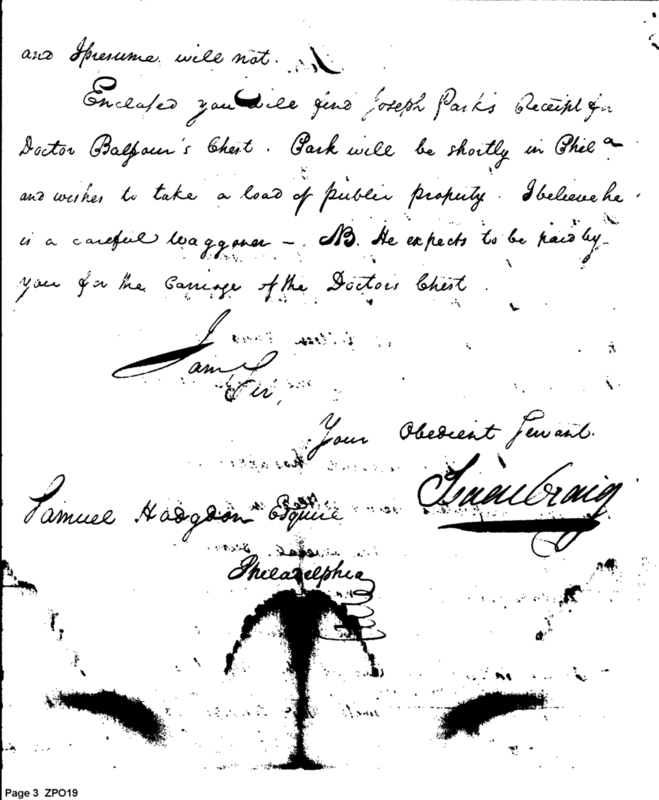 and I presume will not.
Enclosed you will find Joseph Parks Receipt for
Doctor Balfour's Chest. Park will be shortly in Phila
and wishes to take a load of public property. I believe he
is a careful Waggoner – NB. He expects to be paid by
you for the Carriage of the Doctors Chest.
I am
Sir,
Your Obedient Servant.
Isaac Craig
Samuel Hodgdon Esquire
Philadelphia
Page 3 ZPO19